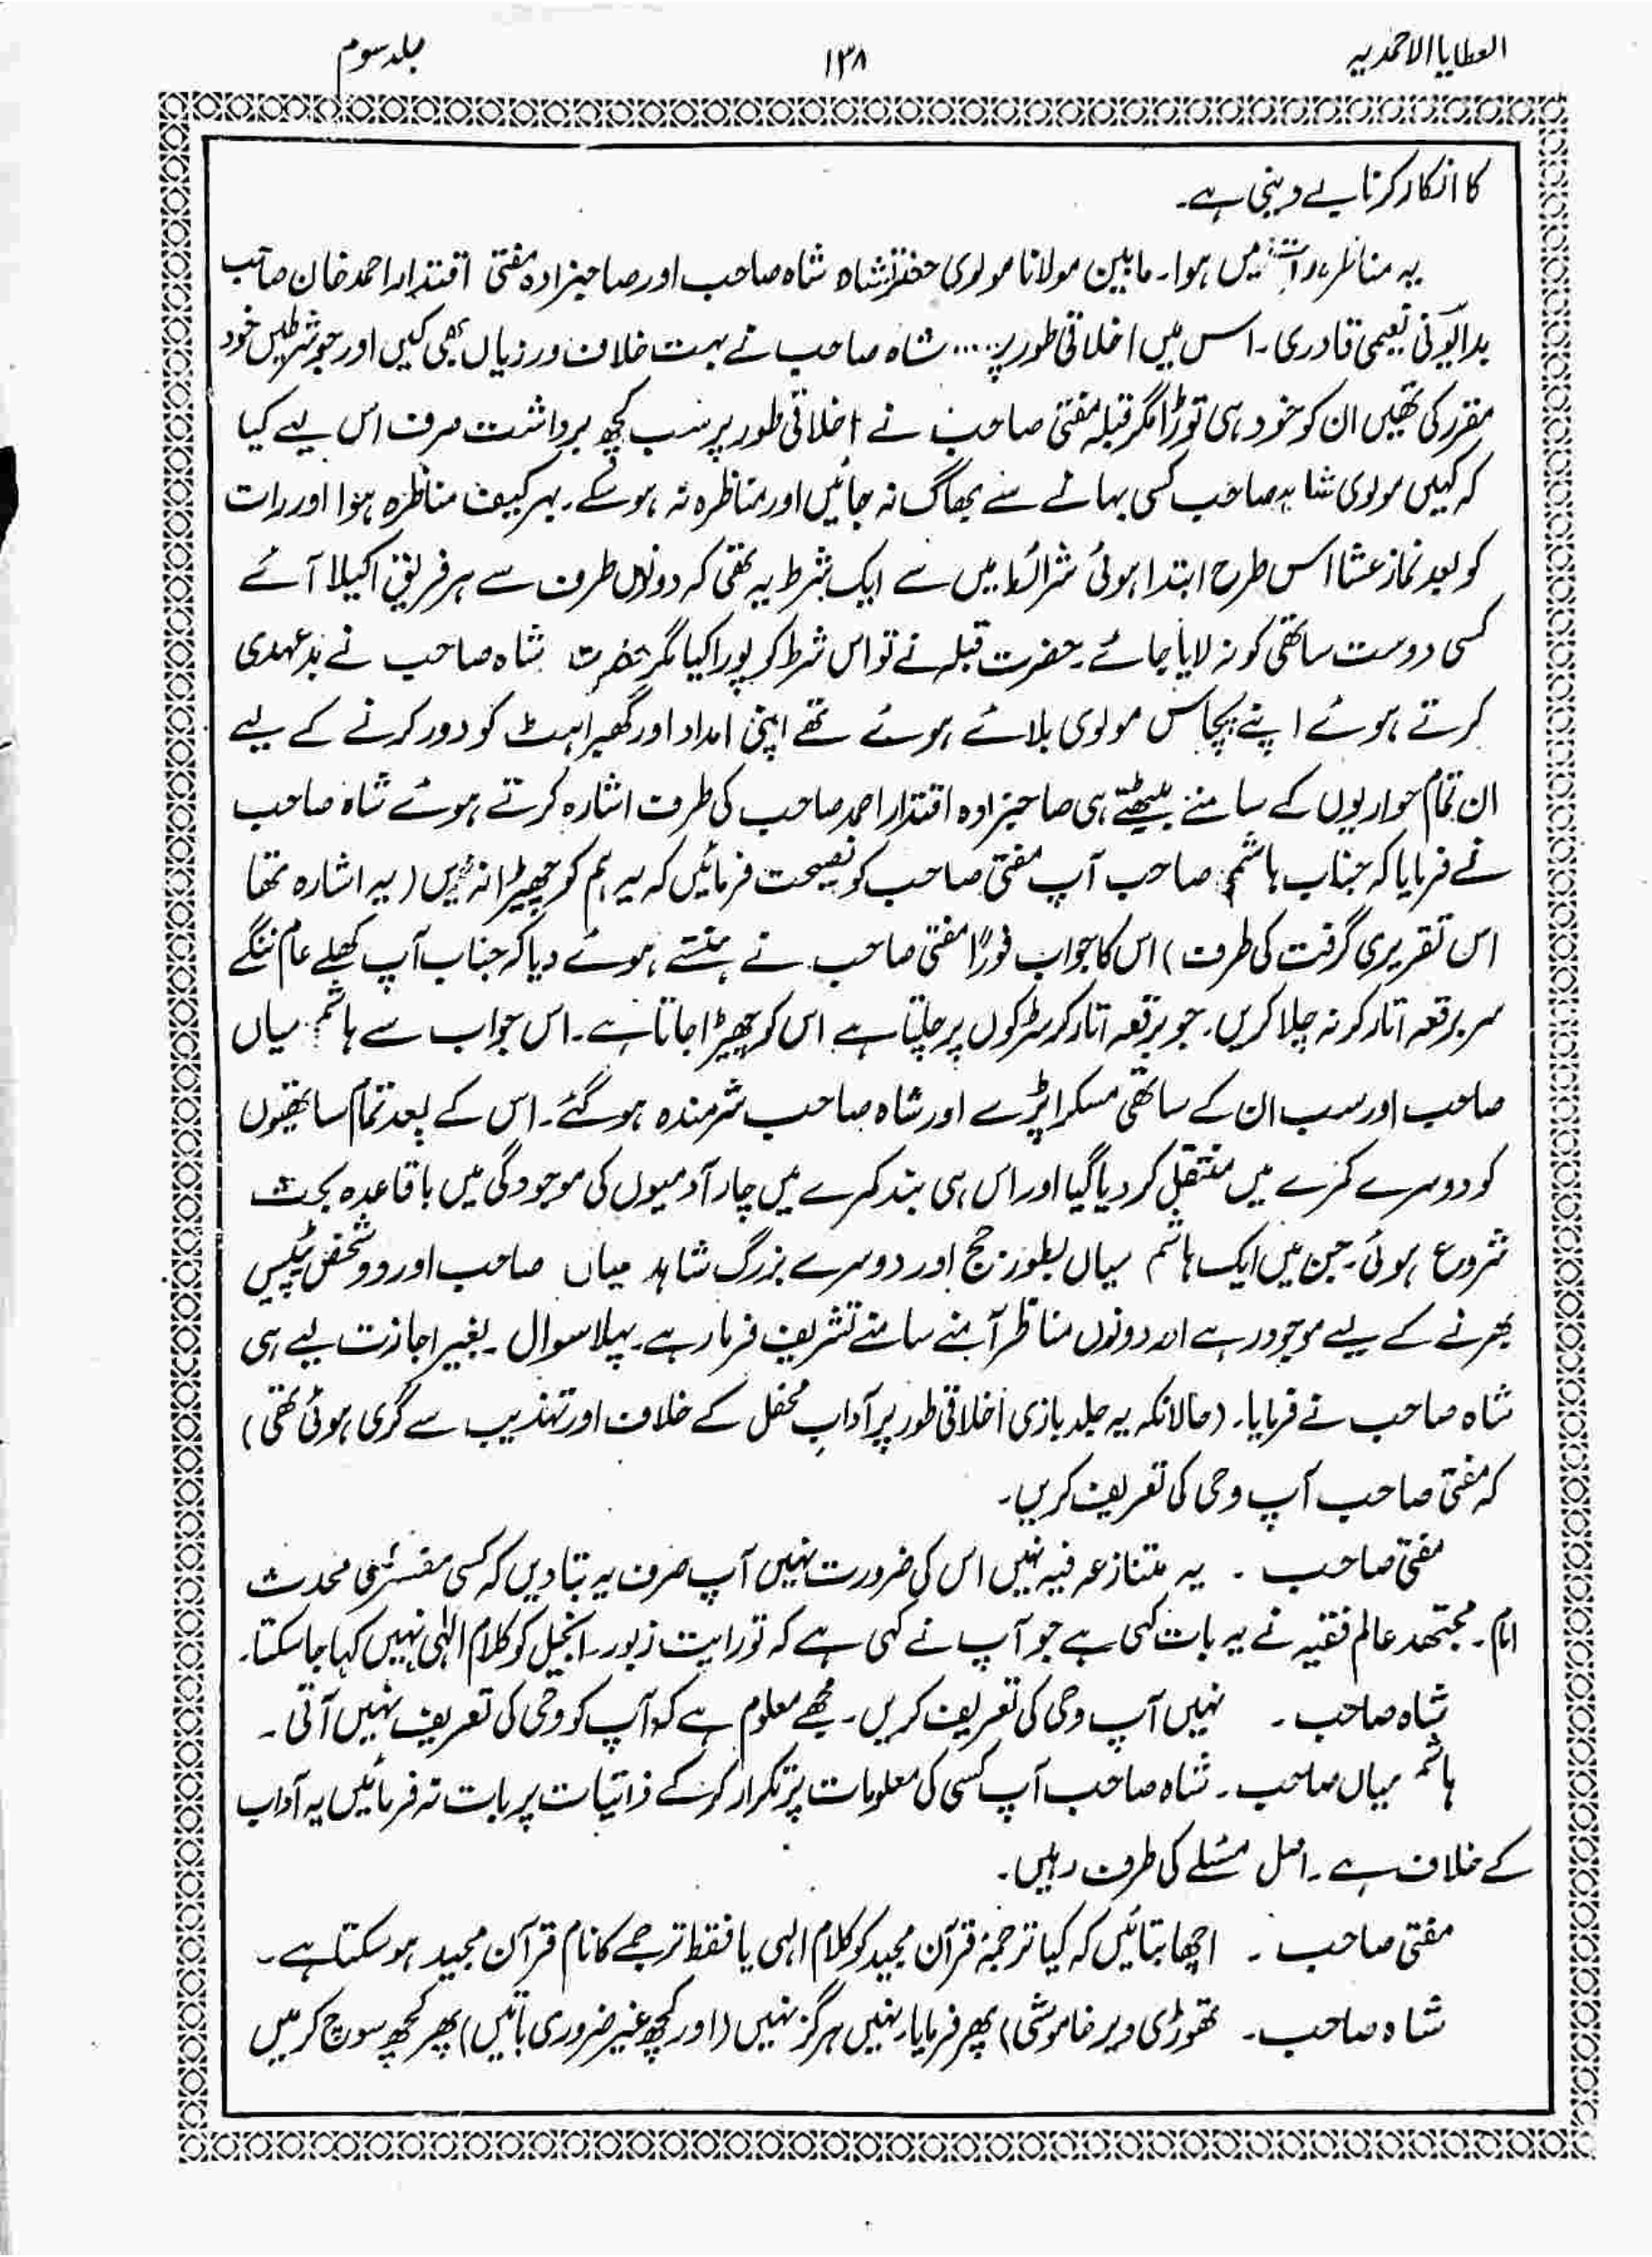 العطایا الاحمدیہ
۱۳۸
جلد سوم
کا انکار کرنا بے دینی ہے۔
یہ مناظرہ رات میں ہوا۔ مابین مولانا مولوی حضرت شاہ صاحب اور صاحبزادہ مفتی اقتدار احمد خان صاحب
بدایونی نعیمی قادری۔ اس میں اخلاقی طور پر ..... شاہ صاحب نے بہت خلاف ورزیاں بھی کیں اور جو شرطیں خود
مقرر کی تھیں ان کو خود ہی توڑا مگر قبلہ مفتی صاحب نے اخلاقی طور پر سب کچھ برداشت صرف اس لیے کیا
کہ کہیں مولوی شاہ صاحب کسی بہانے سے بھاگ نہ جائیں اور مناظرہ نہ ہو سکے۔ بہر کیف مناظرہ ہوا اور رات
کو بعد نماز عشا اس طرح ابتدا ہوئی شرائط میں سے ایک شرط یہ تھی کہ دونوں طرف سے ہر فریق اکیلا آئے
کسی دوست ساتھی کو نہ لایا جائے۔ حضرت قبلہ نے تو اس شرط کو پورا کیا مگر حضرت شاہ صاحب نے بد عہدی
کرتے ہوئے اپنے پچاس مولوی بلائے ہوئے تھے اپنی امداد اور گھبراہٹ کو دور کرنے کے لیے
ان تمام حواریوں کے سامنے بیٹھتے ہی صاحبزادہ اقتدار احمد صاحب کی طرف اشارہ کرتے ہوئے شاہ صاحب
نے فرمایا کہ جناب ہاشمی صاحب آپ مفتی صاحب کو نصیحت فرمائیں کہ یہ ہم کو چھیڑا نہ کریں (یہ اشارہ تھا
اس تقریری گرفت کی طرف) اس کا جواب فوراً مفتی صاحب نے ہنستے ہوئے دیا کہ جناب آپ کھلے عام ننگے
سر برقعہ اتار کر نہ چلا کریں۔ جو برقعہ اتار کر سڑکوں پر چلتا ہے اس کو چھیڑا جاتا ہے۔ اس جواب سے ہاشم میاں
صاحب اور سب ان کے ساتھی مسکرا پڑے اور شاہ صاحب شرمندہ ہو گئے۔ اس کے بعد تمام ساتھیوں
کو دوسرے کمرے میں منتقل کر دیا گیا اور اس ہی بند کمرے میں چار آدمیوں کی موجودگی میں باقاعدہ بحث
شروع ہوئی۔ جن میں ایک ہاشم میاں بطور جج اور دوسرے بزرگ شاہد میاں صاحب اور دو شخص ٹیپیں
بھرنے کے لیے موجود رہے اور دونوں مناظر آمنے سامنے تشریف فرما رہے۔ پہلا سوال۔ بغیر اجازت لیے ہی
شاہ صاحب نے فرمایا۔ (حالانکہ یہ جلد بازی اخلاقی طور پر آداب محفل کے خلاف اور تہذیب سے گری ہوئی تھی)
کہ مفتی صاحب آپ وحی کی تعریف کریں۔
مفتی صاحب ۔ یہ متنازعہ فیہ نہیں اس کی ضرورت نہیں آپ صرف یہ بتا دیں کہ کسی مفسر کسی محدث
امام۔ مجتہد عالم فقیہ نے یہ بات کہی ہے جو آپ نے کہی ہے کہ تورایت زبور۔ انجیل کو کلام الٰہی نہیں کہا جا سکتا۔
شاہ صاحب ۔ نہیں آپ وحی کی تعریف کریں۔ مجھے معلوم ہے کہ آپ کو وحی کی تعریف نہیں آتی ۔
ہاشم میاں صاحب ۔ شاہ صاحب آپ کسی کی معلومات پر تکرار کر کے ذاتیات پر بات نہ فرمائیں یہ آداب
کے خلاف ہے ۔ اصل مسئلے کی طرف رہیں ۔
مفتی صاحب ۔ اچھا بتائیں کہ کیا ترجمۂ قرآن مجید کو کلام الٰہی یا فقط ترجمے کا نام قرآن مجید ہو سکتا ہے ۔
شاہ صاحب ۔ تھوڑی دیر خاموشی) پھر فرمایا۔ نہیں ہرگز نہیں (اور کچھ غیر ضروری باتیں) پھر کچھ سوچ کر میں